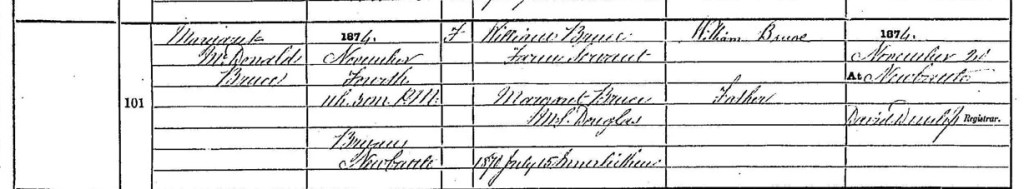 101
Margaret
McDonald
Bruce
1874.
November
Fourth
5h. 30m. P.M.
Newbattle
F
William Bruce
Farm Servant
Margaret Bruce
M.S. Douglas
1870 July 15 Innerleithen
William Bruce
Father
1874.
November 20
At Newbattle
David Dunlop Registrar.